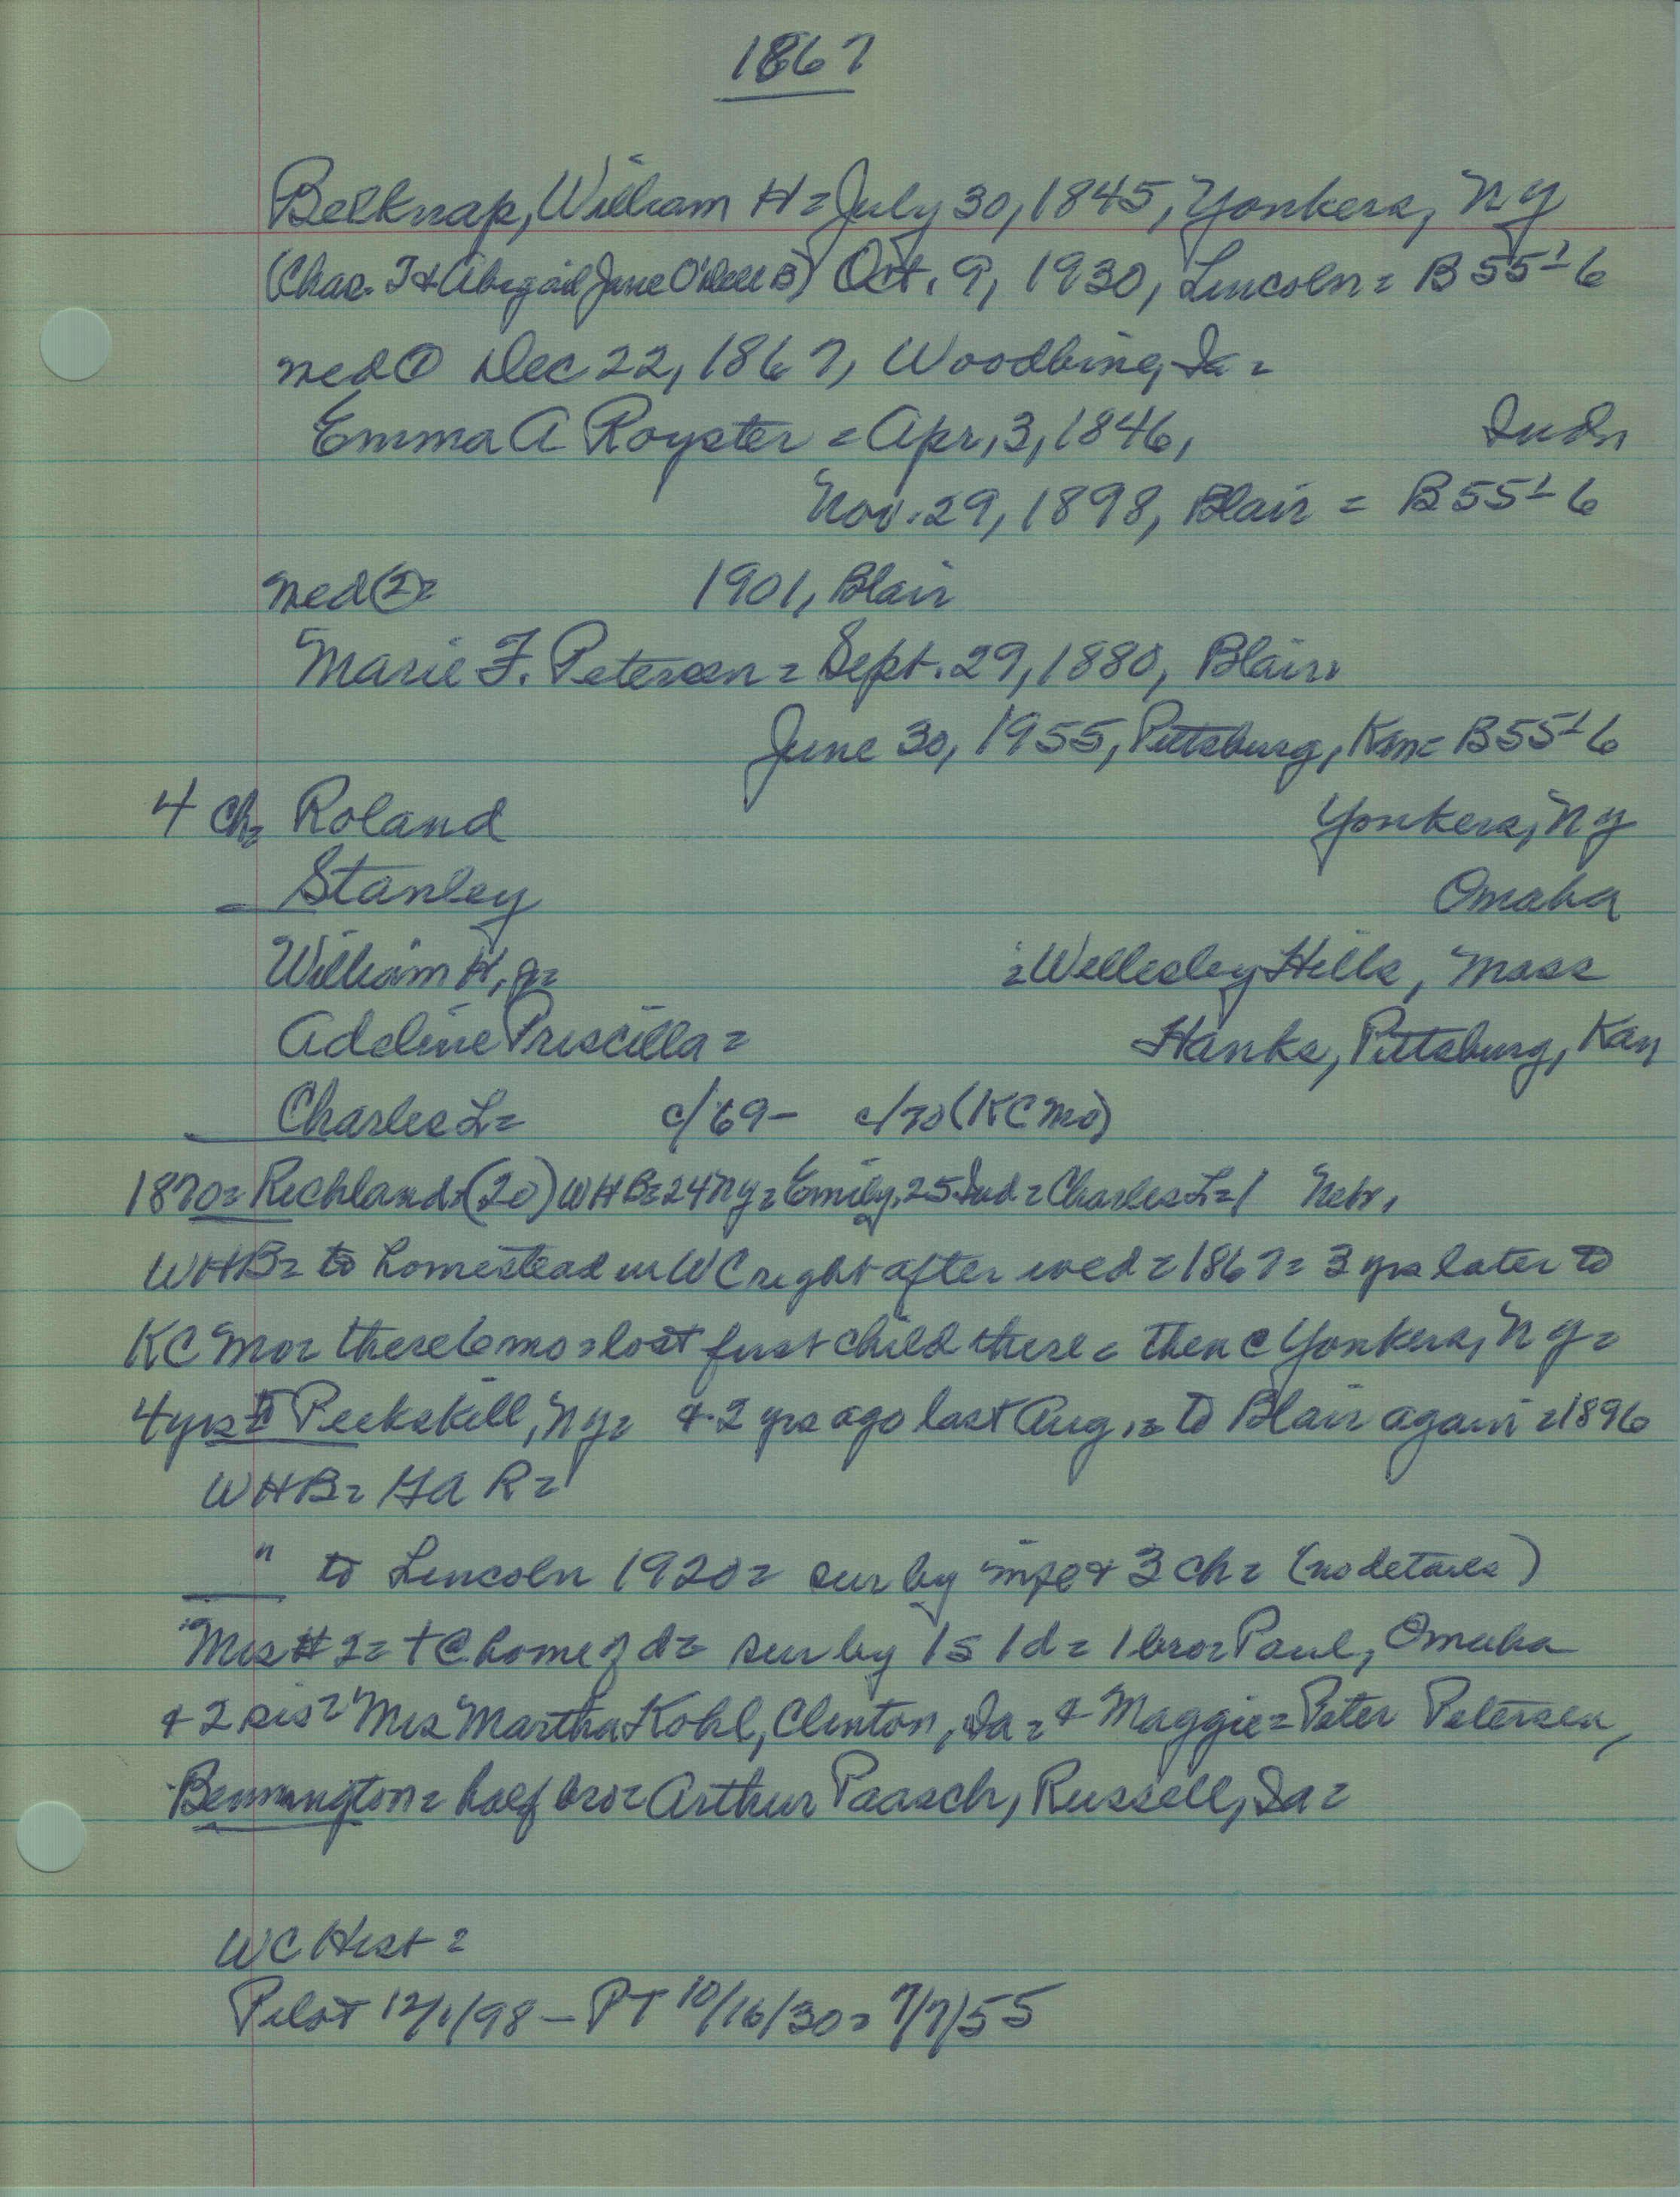 1867
Belknap, William H = July 30, 1845, Yonkers, NY
(Chas. T & Abigail Jane O'Dell B) Oct. 9, 1930, Lincoln = B 55-1-6
med ① Dec 22, 1867, Woodbine, Ia =
Emma A Royster = Apr. 3, 1846, Indn
Nov. 29, 1898, Blair = B 55-1-6
med ② = 1901, Blair
Marie F. Petersen = Sept. 29, 1880, Blair,
June 30, 1955, Pittsburg, Kan = B 55-1-6
4 ch = Roland Yonkers, NY
Stanley Omaha
William H, Jr = = Wellesley Hills, Mass
Adeline Priscilla = Hanks, Pittsburg, Kan
Charles L = c/69 - c/70 (KC Mo)
1870 = Richland = (20) WHB = 24 NY = Emily, 25 Ind = Charles L = 1 Nebr,
WHB = to homestead in WC right after wed = 1867 = 3 yrs later to
KC Mo = there 6 mo = lost first child there = then @ Yonkers, NY =
4 yrs = to Peekskill, NY = & 2 yrs ago last Aug, = to Blair again = 1896
WHB = GAR =
" to Lincoln 1920 = sur by wife & 3 ch = (no details)
Mrs #2 = † @ home of d = sur by 1 s 1 d = 1 bro = Paul, Omaha
& 2 sis = Mrs Martha Kohl, Clinton, Ia = & Maggie = Peter Petersen,
Bennington = half bro = Arthur Paasch, Russell, Ia =
WC Hist =
Pilot 12/1/98 - PT 10/16/30 = 7/7/55